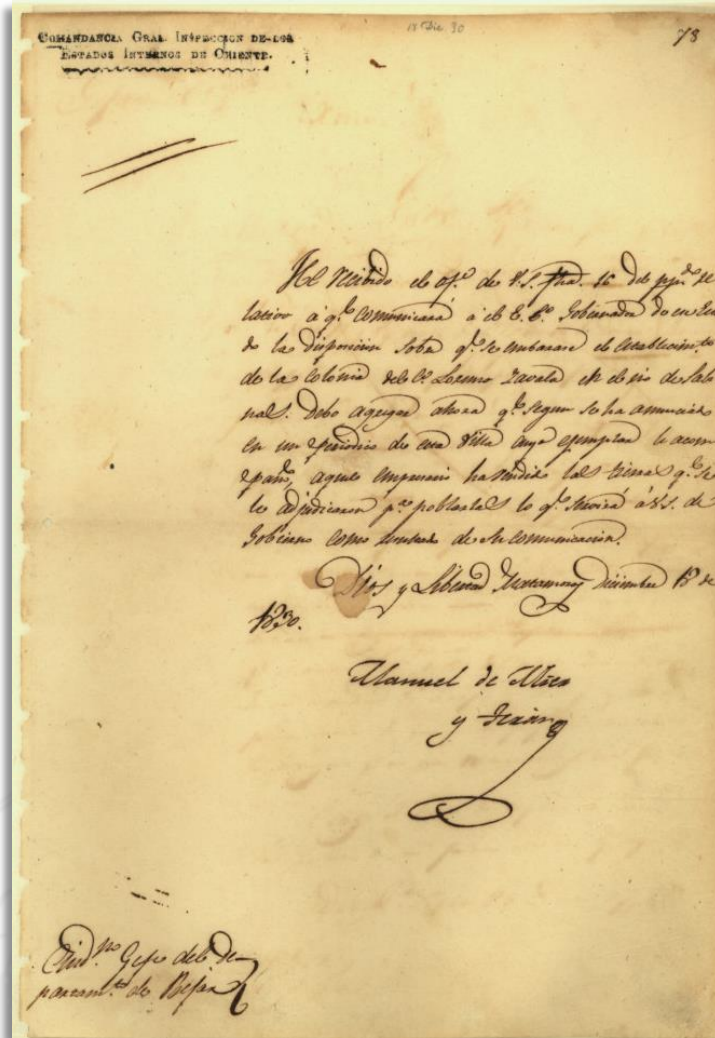 18 Dic 30
78
COMANDANCIA GRAL. INSPECCION DE LOS
ESTADOS INTERNOS DE ORIENTE.
He recibido el of.º de V.S. fha. 16 del ppdo. re
lativo á q.e comunicará á el E. S.or Gobernador de ese Es
do la disposicion sobre q.e se embarase el establecim.to
de la Colonia del C. Lorenzo Zavala en el rio de Sabi
nas. Debo agregar ahora q.e segun se ha anunciado
en un periodico de esta Villa cuyo ejemplar le acom
paño, aquel empresario ha vendido las tierras q.e se
le adjudicaron p.a poblarlas lo q.e servirá á V.S. de
Gobierno como resultado de su comunicacion.
Dios y Libertad Matamoros Diciembre 18 de
1830.
Manuel de Mier
y Terán
Ciud.no Gefe del De
partam.to de Bejar